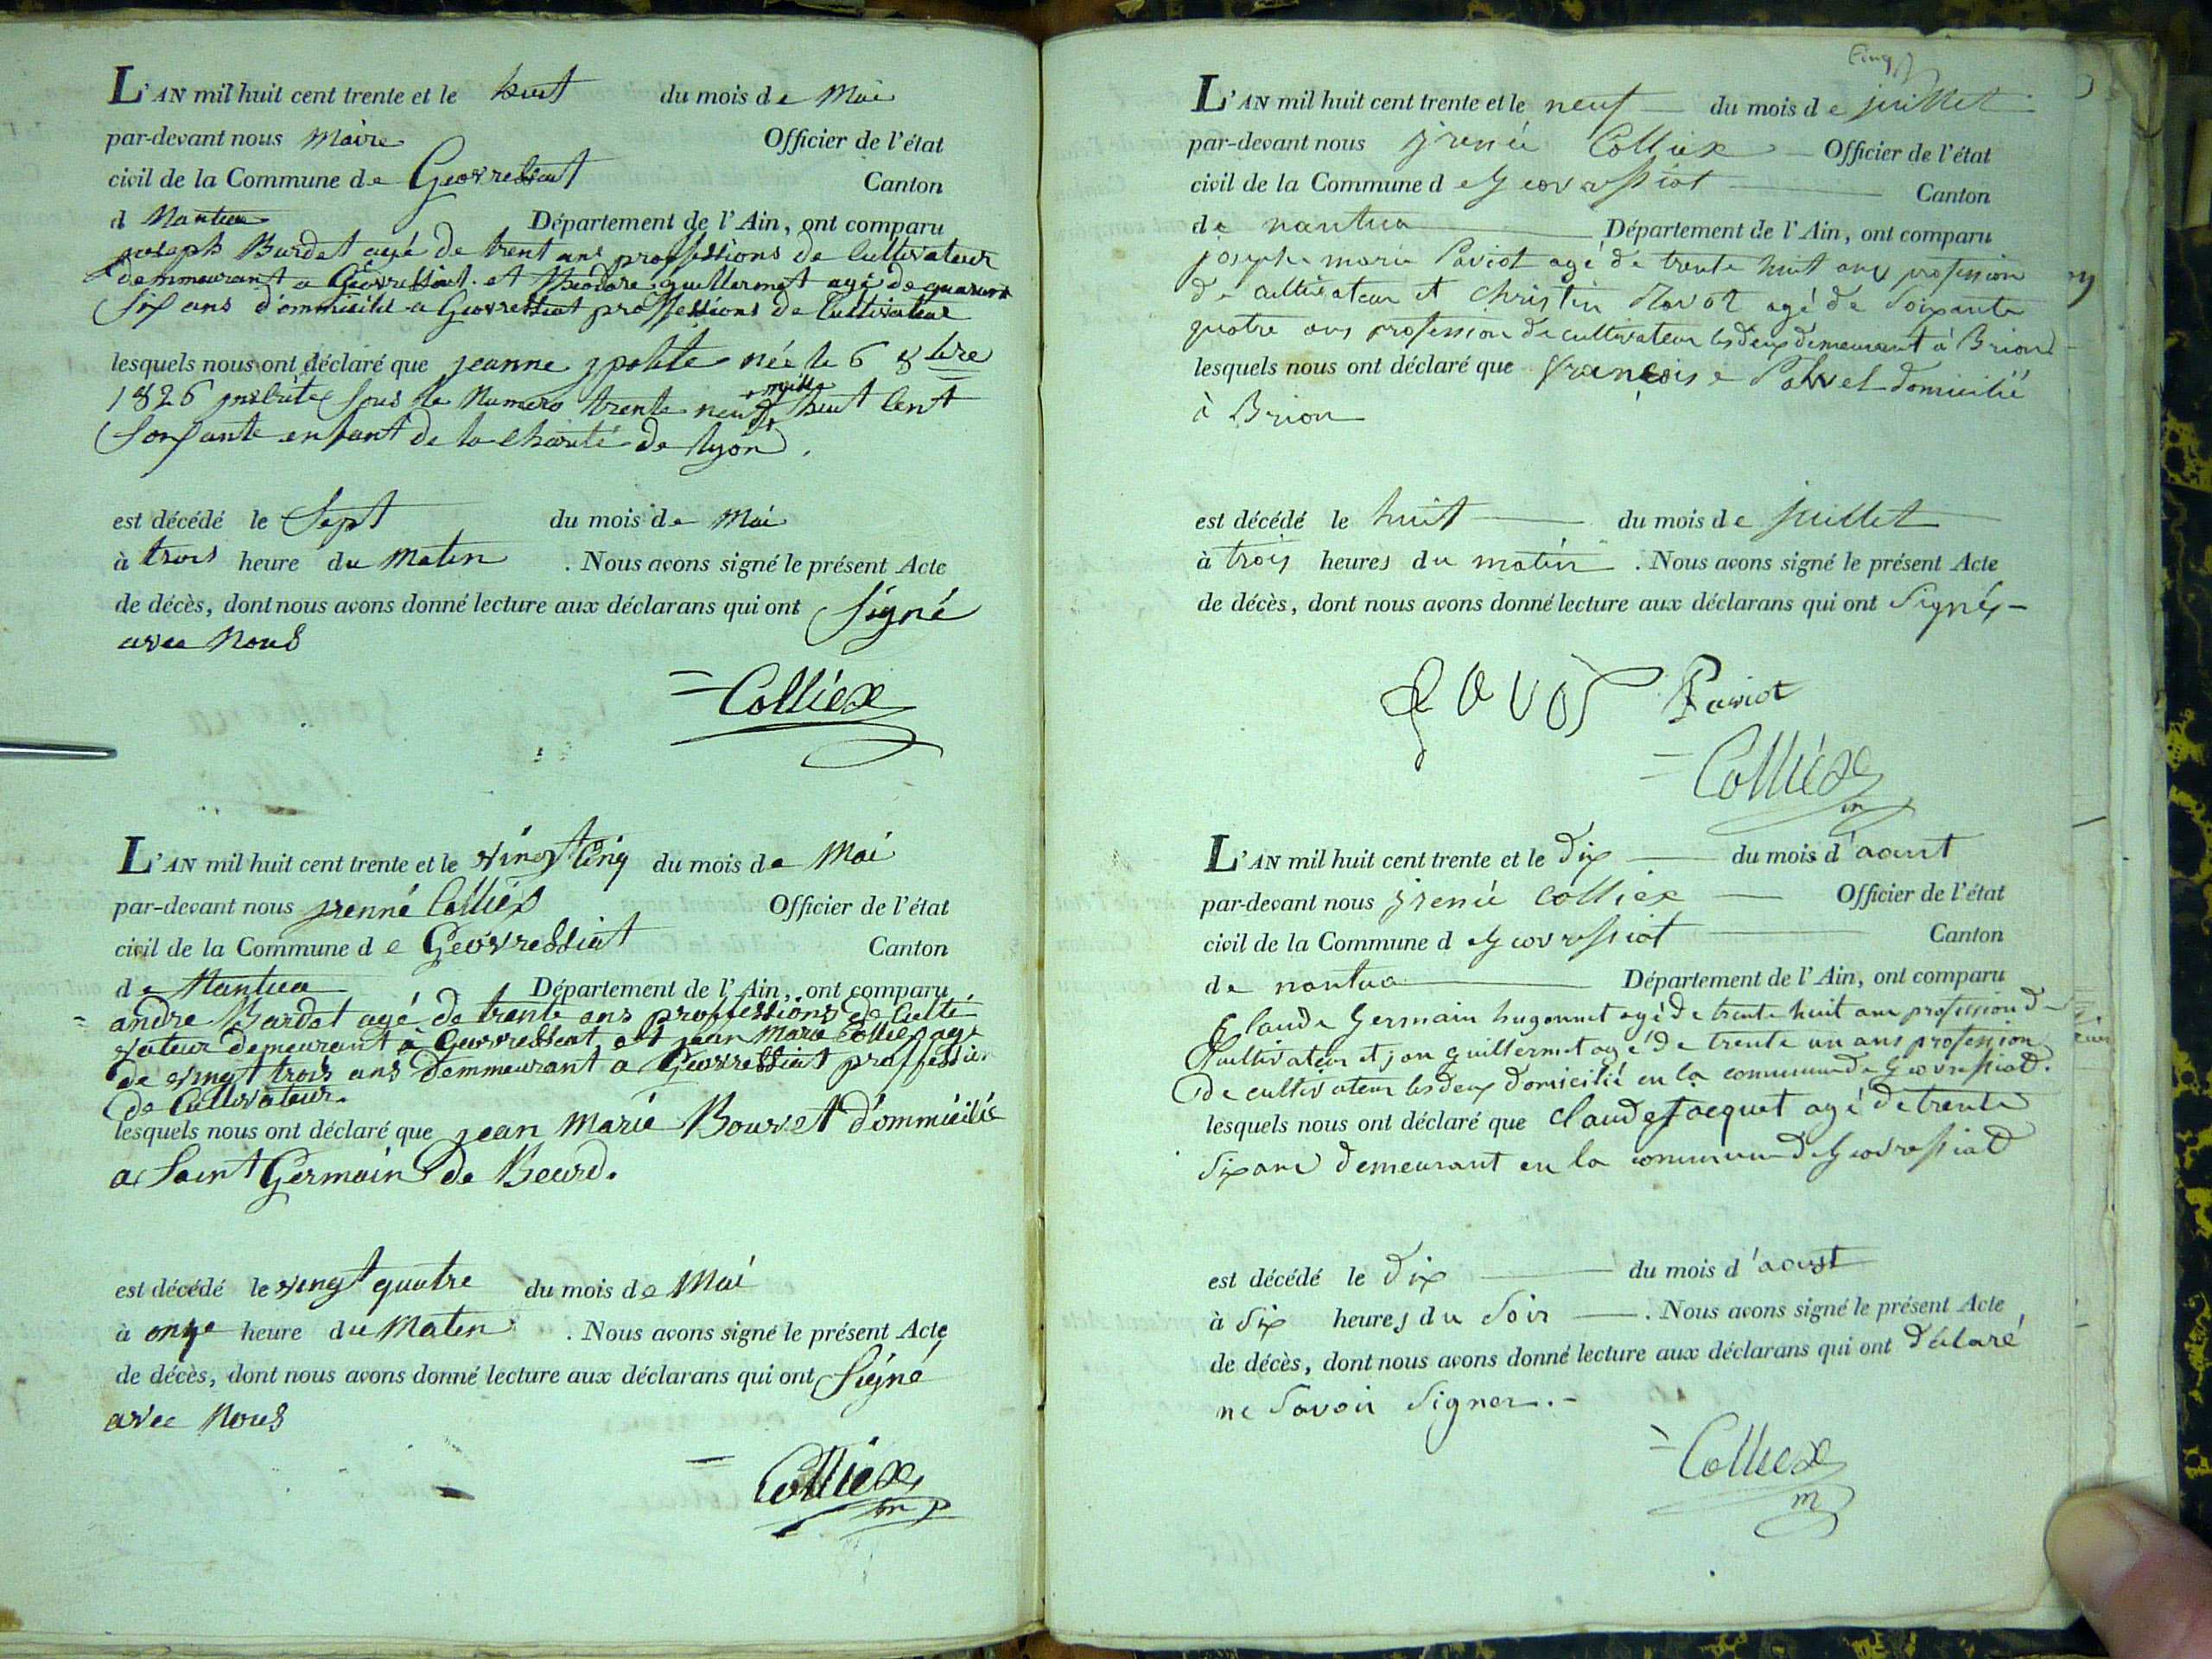 L'AN mil huit cent trente et le huit du mois de Mai
par-devant nous Maire Officier de l'état
civil de la Commune de Geovressiat Canton
d Nantua Département de l'Ain, ont comparu
joseph Burdet agé de trent ans proffessions de Cultivateur
demmeurant a Géovressiat et Theodore guillermet agé de quarant
Six ans d'ommicilié a Geovressiat proffessions de Cultivateur
lesquels nous ont déclaré que jeanne ypolite née le 6 8bre
1826 inscrite sous le Numero trente neuf mille huit Cent
Soixante enfant de la charité de lyon.
est décédé le Sept du mois de Mai
à trois heure du Matin . Nous avons signé le présent Acte
de décès, dont nous avons donné lecture aux déclarans qui ont Signé
avec Nous
Colliex
L'AN mil huit cent trente et le vingt cinq du mois de Mai
par-devant nous jrenné Colliex Officier de l'état
civil de la Commune de Geovressiat Canton
de Nantua Département de l'Ain, ont comparu
andre Burdet agé de trente ans proffessions de Culti
vateur demeurant à Geovressiat et jean Marie Colliex agé
de vingt trois ans demmeurant a Geovressiat proffession
de Cultivateur.
lesquels nous ont déclaré que jean Marie Bouvet d'ommicilié
a Saint Germain de Beard.
est décédé le vingt quatre du mois de Mai
à onze heure du Matin . Nous avons signé le présent Acte
de décès, dont nous avons donné lecture aux déclarans qui ont Signé
avec Nous
Colliex
Cinq
L'AN mil huit cent trente et le neuf du mois de juillet
par-devant nous jrenée Colliex Officier de l'état
civil de la Commune de Geovressiat Canton
de nantua Département de l'Ain, ont comparu
joseph marie Paviot agé de trente huit ans profession
de cultivateur et christin Ravot agé de Soixante
quatre ans profession de cultivateur les deux demeurant à Brion
lesquels nous ont déclaré que françoise domicilié
à Brion
est décédé le huit du mois de juillet
à trois heures du matin . Nous avons signé le présent Acte
de décès, dont nous avons donné lecture aux déclarans qui ont Signés
Paviot
Colliex
L'AN mil huit cent trente et le dix du mois d'aout
par-devant nous jrenée Colliex Officier de l'état
civil de la Commune de Geovressiat Canton
de nantua Département de l'Ain, ont comparu
Claude Germain hugonnet agé de trente huit ans profession de
Cultivateur et jean guillermet agé de trente un ans profession
De cultivateur les deux domicilié en la commune de Geovressiat.
lesquels nous ont déclaré que Claude jacquet agé de trente
six ans demeurant en la commune de Geovressiat
est décédé le dix du mois d'aoust
à Six heures du Soir . Nous avons signé le présent Acte
de décès, dont nous avons donné lecture aux déclarans qui ont déclaré
ne Savoir Signer.
Colliex